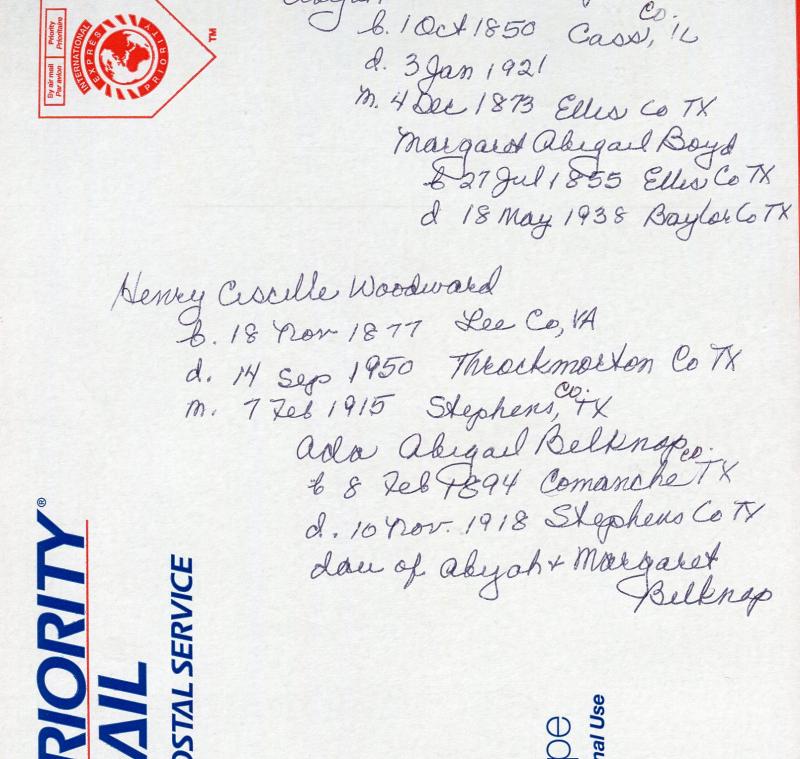 b. 1 Oct 1850 Cass, Co. IL
d. 3 Jan 1921
m. 4 Dec 1873 Ellis Co TX
Margaret Abigail Boyd
b 27 Jul 1855 Ellis Co TX
d 18 May 1938 Baylor Co TX
Henry Ciscille Woodward
b. 18 Nov 1877 Lee Co, VA
d. 14 Sep 1950 Throckmorton Co TX
m. 7 Feb 1915 Stephens, Co. TX
Ada Abigail Belknap
b 8 Feb 1894 Comanche Co. TX
d. 10 Nov. 1918 Stephens Co TX
dau of Abyah + Margaret
Belknap
INTERNATIONAL
EXPRÈS
PRIORITY
By air mail
Par avion
Priority
Prioritaire
TM
RIORITY®
AIL
OSTAL SERVICE
pe
nal Use